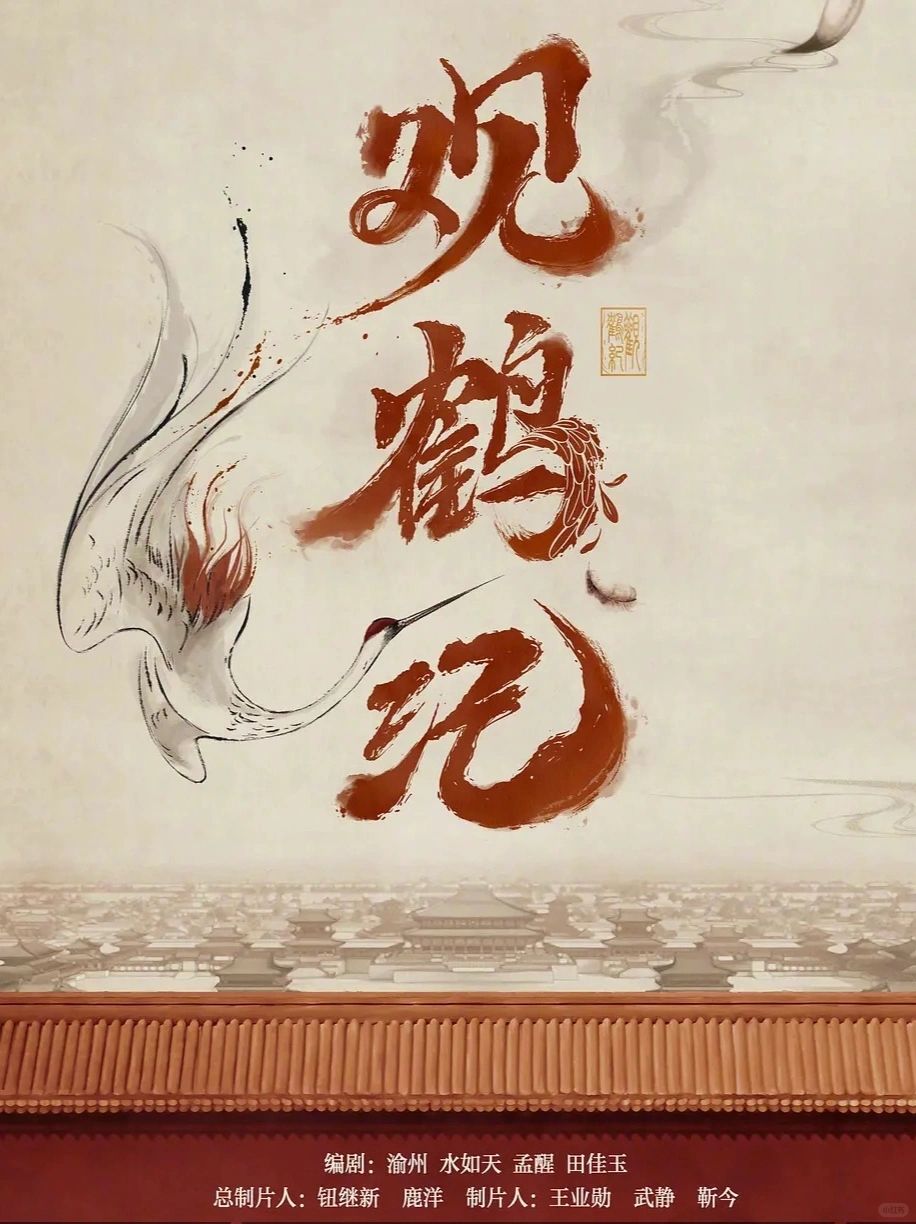 观鹤纪
觀鶴紀
编剧：渝州 水如天 孟醒 田佳玉
总制片人：钮继新 鹿洋 制片人：王业勋 武静 靳今
小红书